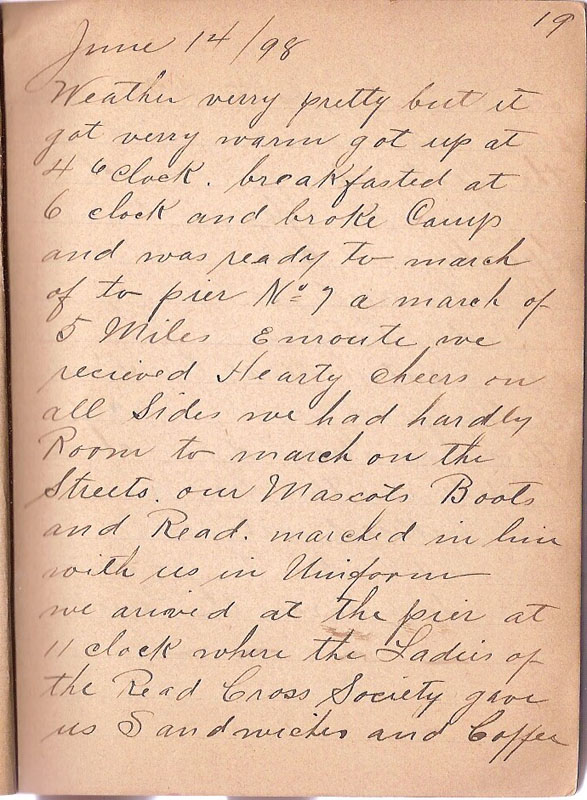 19
June 14/98
Weather verry pretty but it
got verry warm got up at
4 o'clock. breakfasted at
6 clock and broke Camp
and was ready to march
of to pier No 7 a march of
5 Miles Enroute we
recieved Hearty cheers on
all Sides we had hardly
Room to march on the
Streets. our Mascots Boots
and Read. marched in line
with us in Uniform
we arived at the pier at
11 clock where the Ladies of
the Read Cross Society gave
us Sandwiches and Coffee